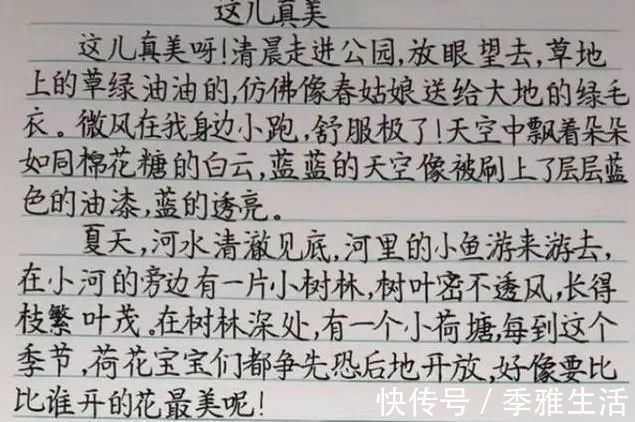 这儿真美
这儿真美呀!清晨走进公园,放眼望去,草地
上的草绿油油的,仿佛像春姑娘送给大地的绿毛
衣。微风在我身边小跑,舒服极了!天空中飘着朵朵
如同棉花糖的白云,蓝蓝的天空像被刷上了层层蓝
色的油漆,蓝的透亮。
夏天,河水清澈见底,河里的小鱼游来游去,
在小河的旁边有一片小树林,树叶密不透风,长得
枝繁叶茂。在树林深处,有一个小荷塘,每到这个
季节,荷花宝宝们都争先恐后地开放,好像要比
比谁开的花最美呢!
快传号 / 季雅生活